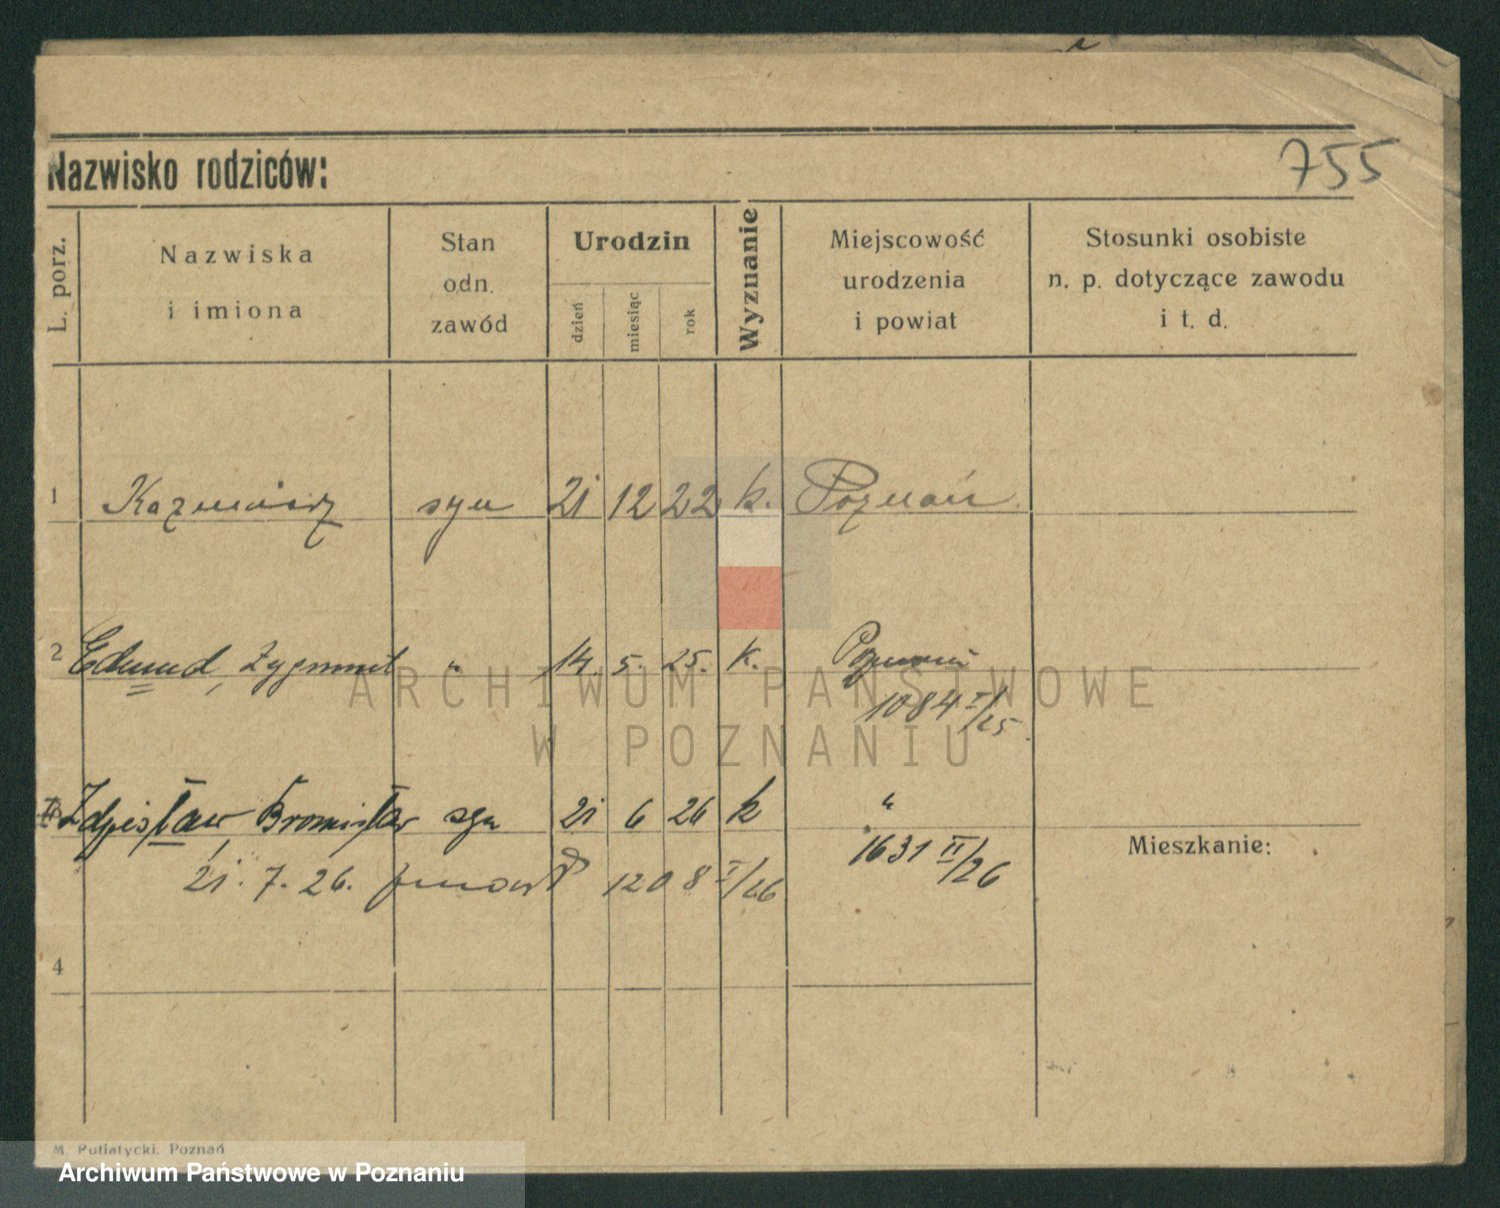 755
Nazwisko rodziców:
L. porz.
Nazwiska
i imiona
Stan
odn.
zawód
Urodzin
dzień
miesiąc
rok
Wyznanie
Miejscowość
urodzenia
i powiat
Stosunki osobiste
n. p. dotyczące zawodu
i t. d.
1 Kazmierz syn 21 12 22 k. Poznań
2 Edmund, Zygmunt " 14. 5. 25. k. Poznań
1084 I/25
Zdzisław, Bronisław syn 21 6 26 k "
1631 II/26
21. 7. 26. zmarł 1208 I/26
Mieszkanie:
4
ARCHIWUM PAŃSTWOWE
W POZNANIU
M. Putiatycki, Poznań
Archiwum Państwowe w Poznaniu